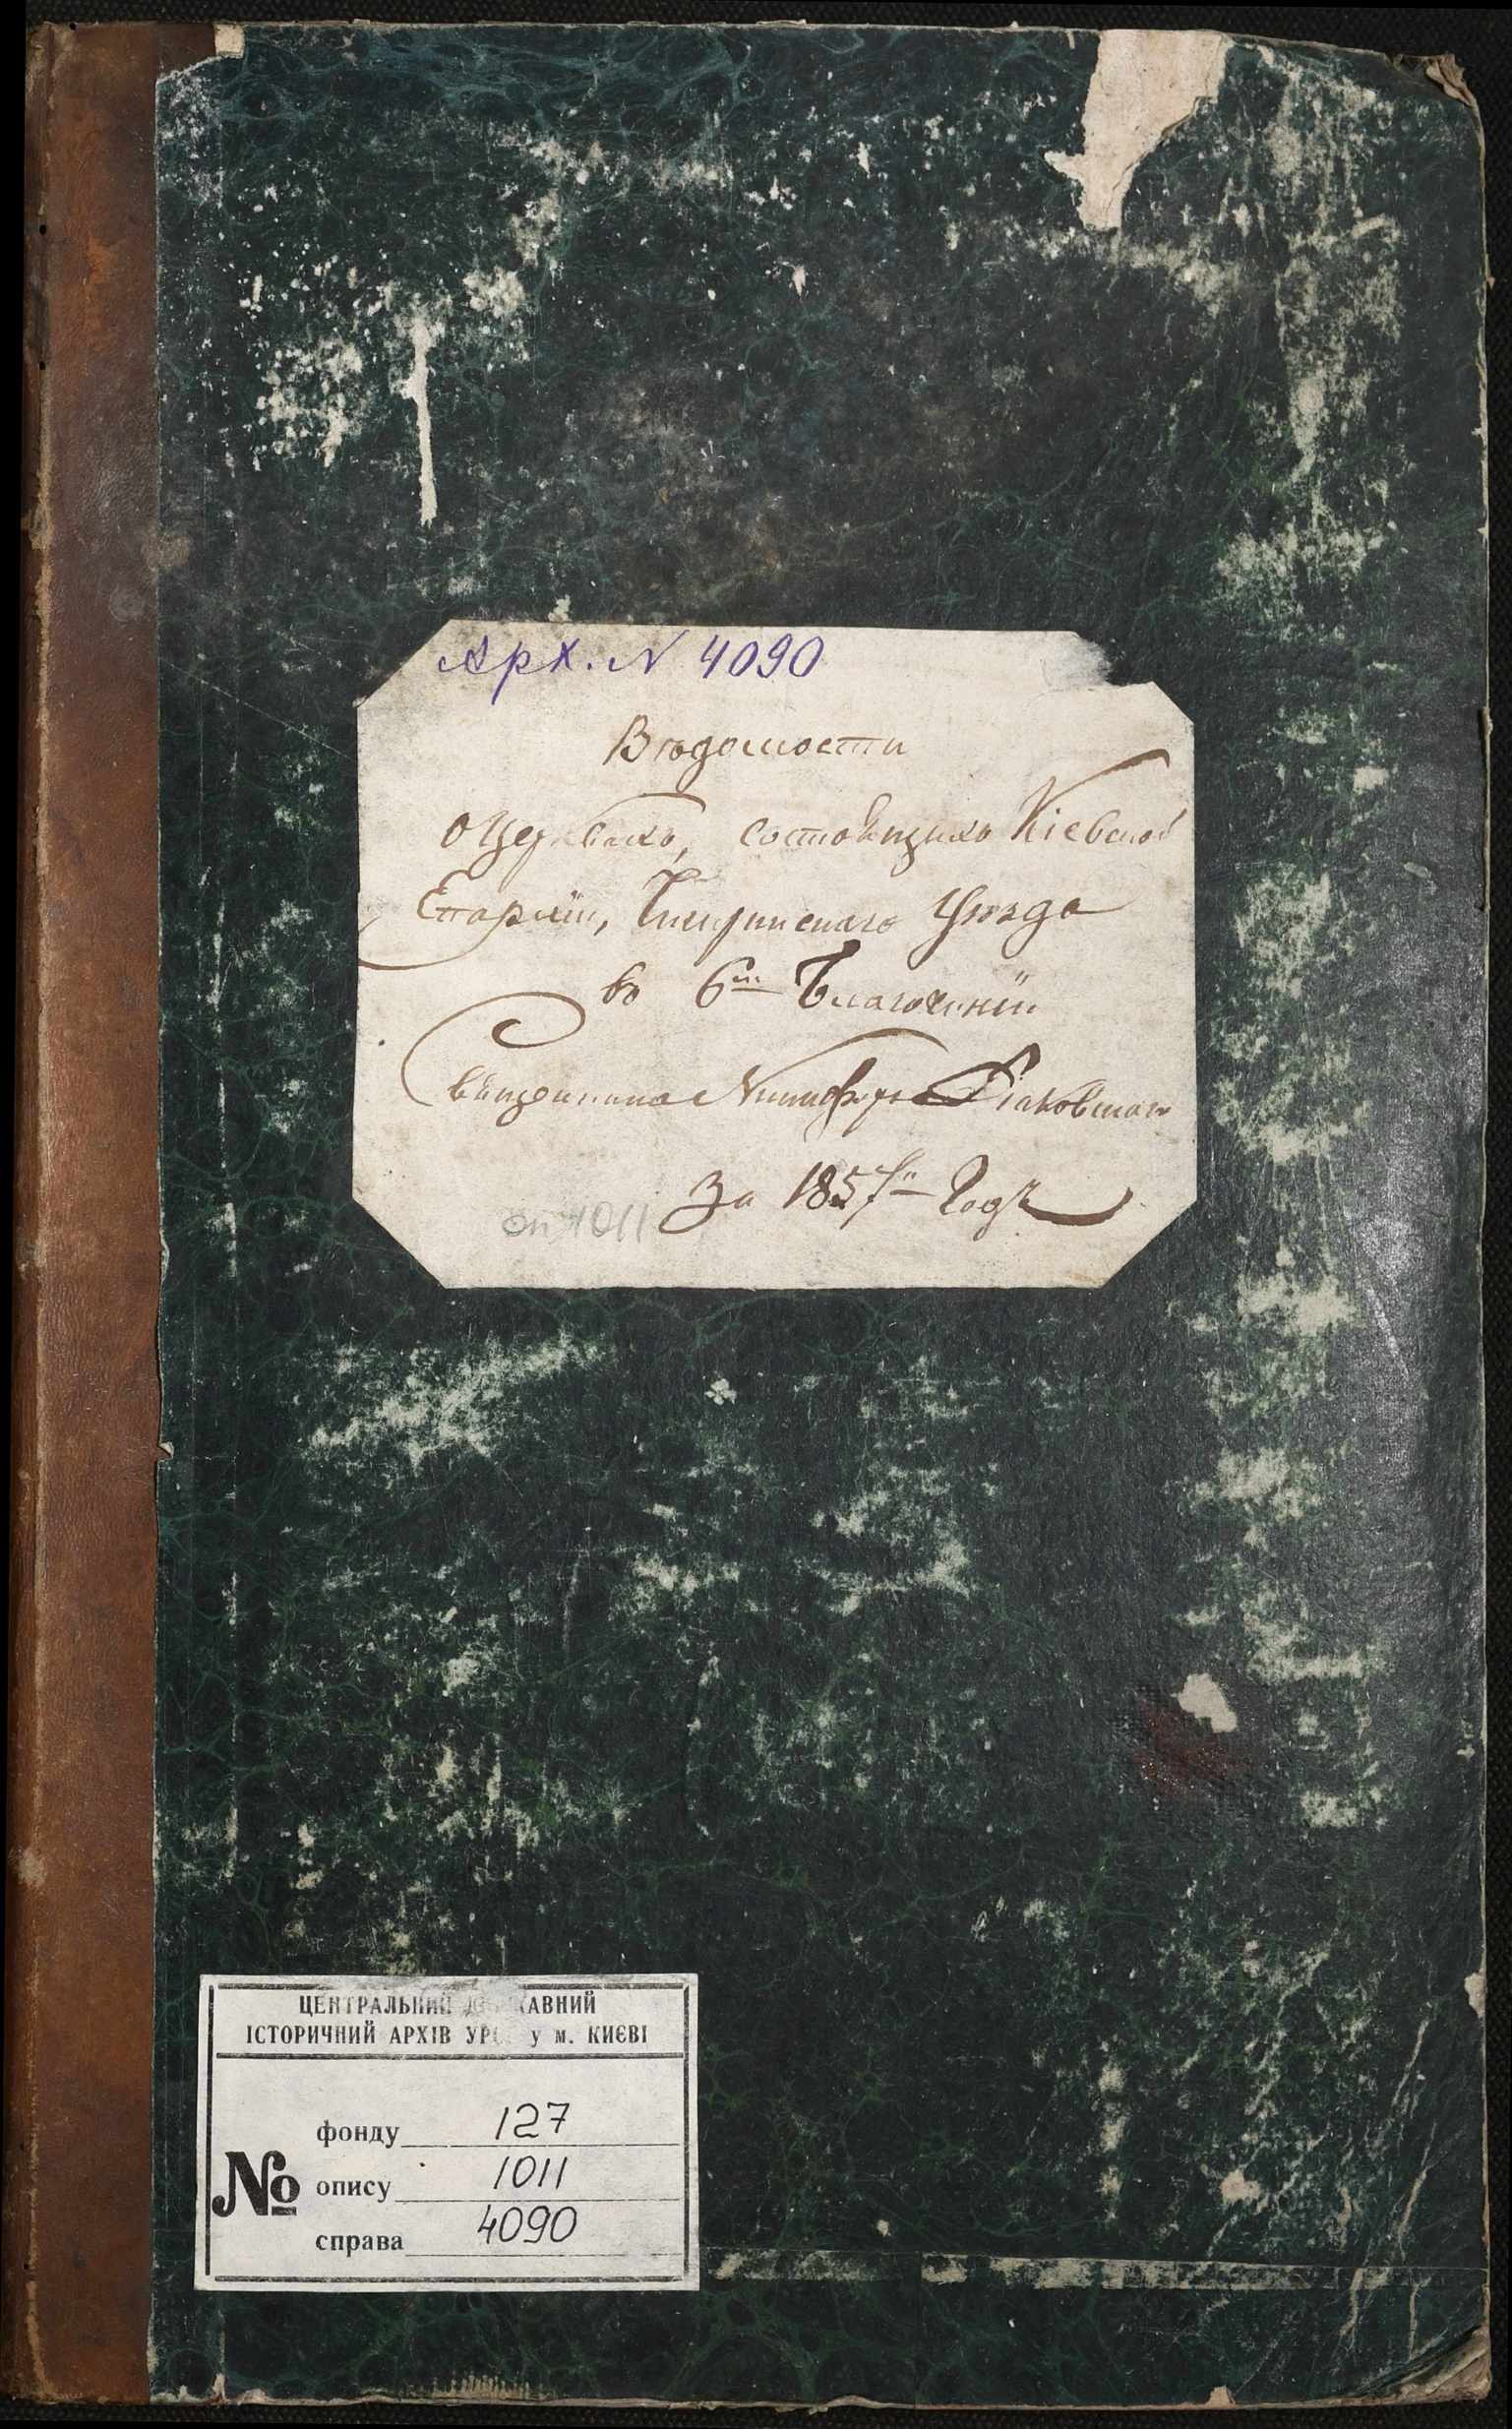 Арх. N 4090
Вѣдомости
о Церквахъ, состоящихъ Кіевской
Епархіи, Чигиринскаго Уѣзда
въ 6мъ Благочиніи
Священника Никифора
За 1857й Годъ
оп 1011
ЦЕНТРАЛЬНИЙ ДЕРЖАВНИЙ
ІСТОРИЧНИЙ АРХІВ УРСР у м. КИЄВІ
№
фонду 127
опису 1011
справа 4090